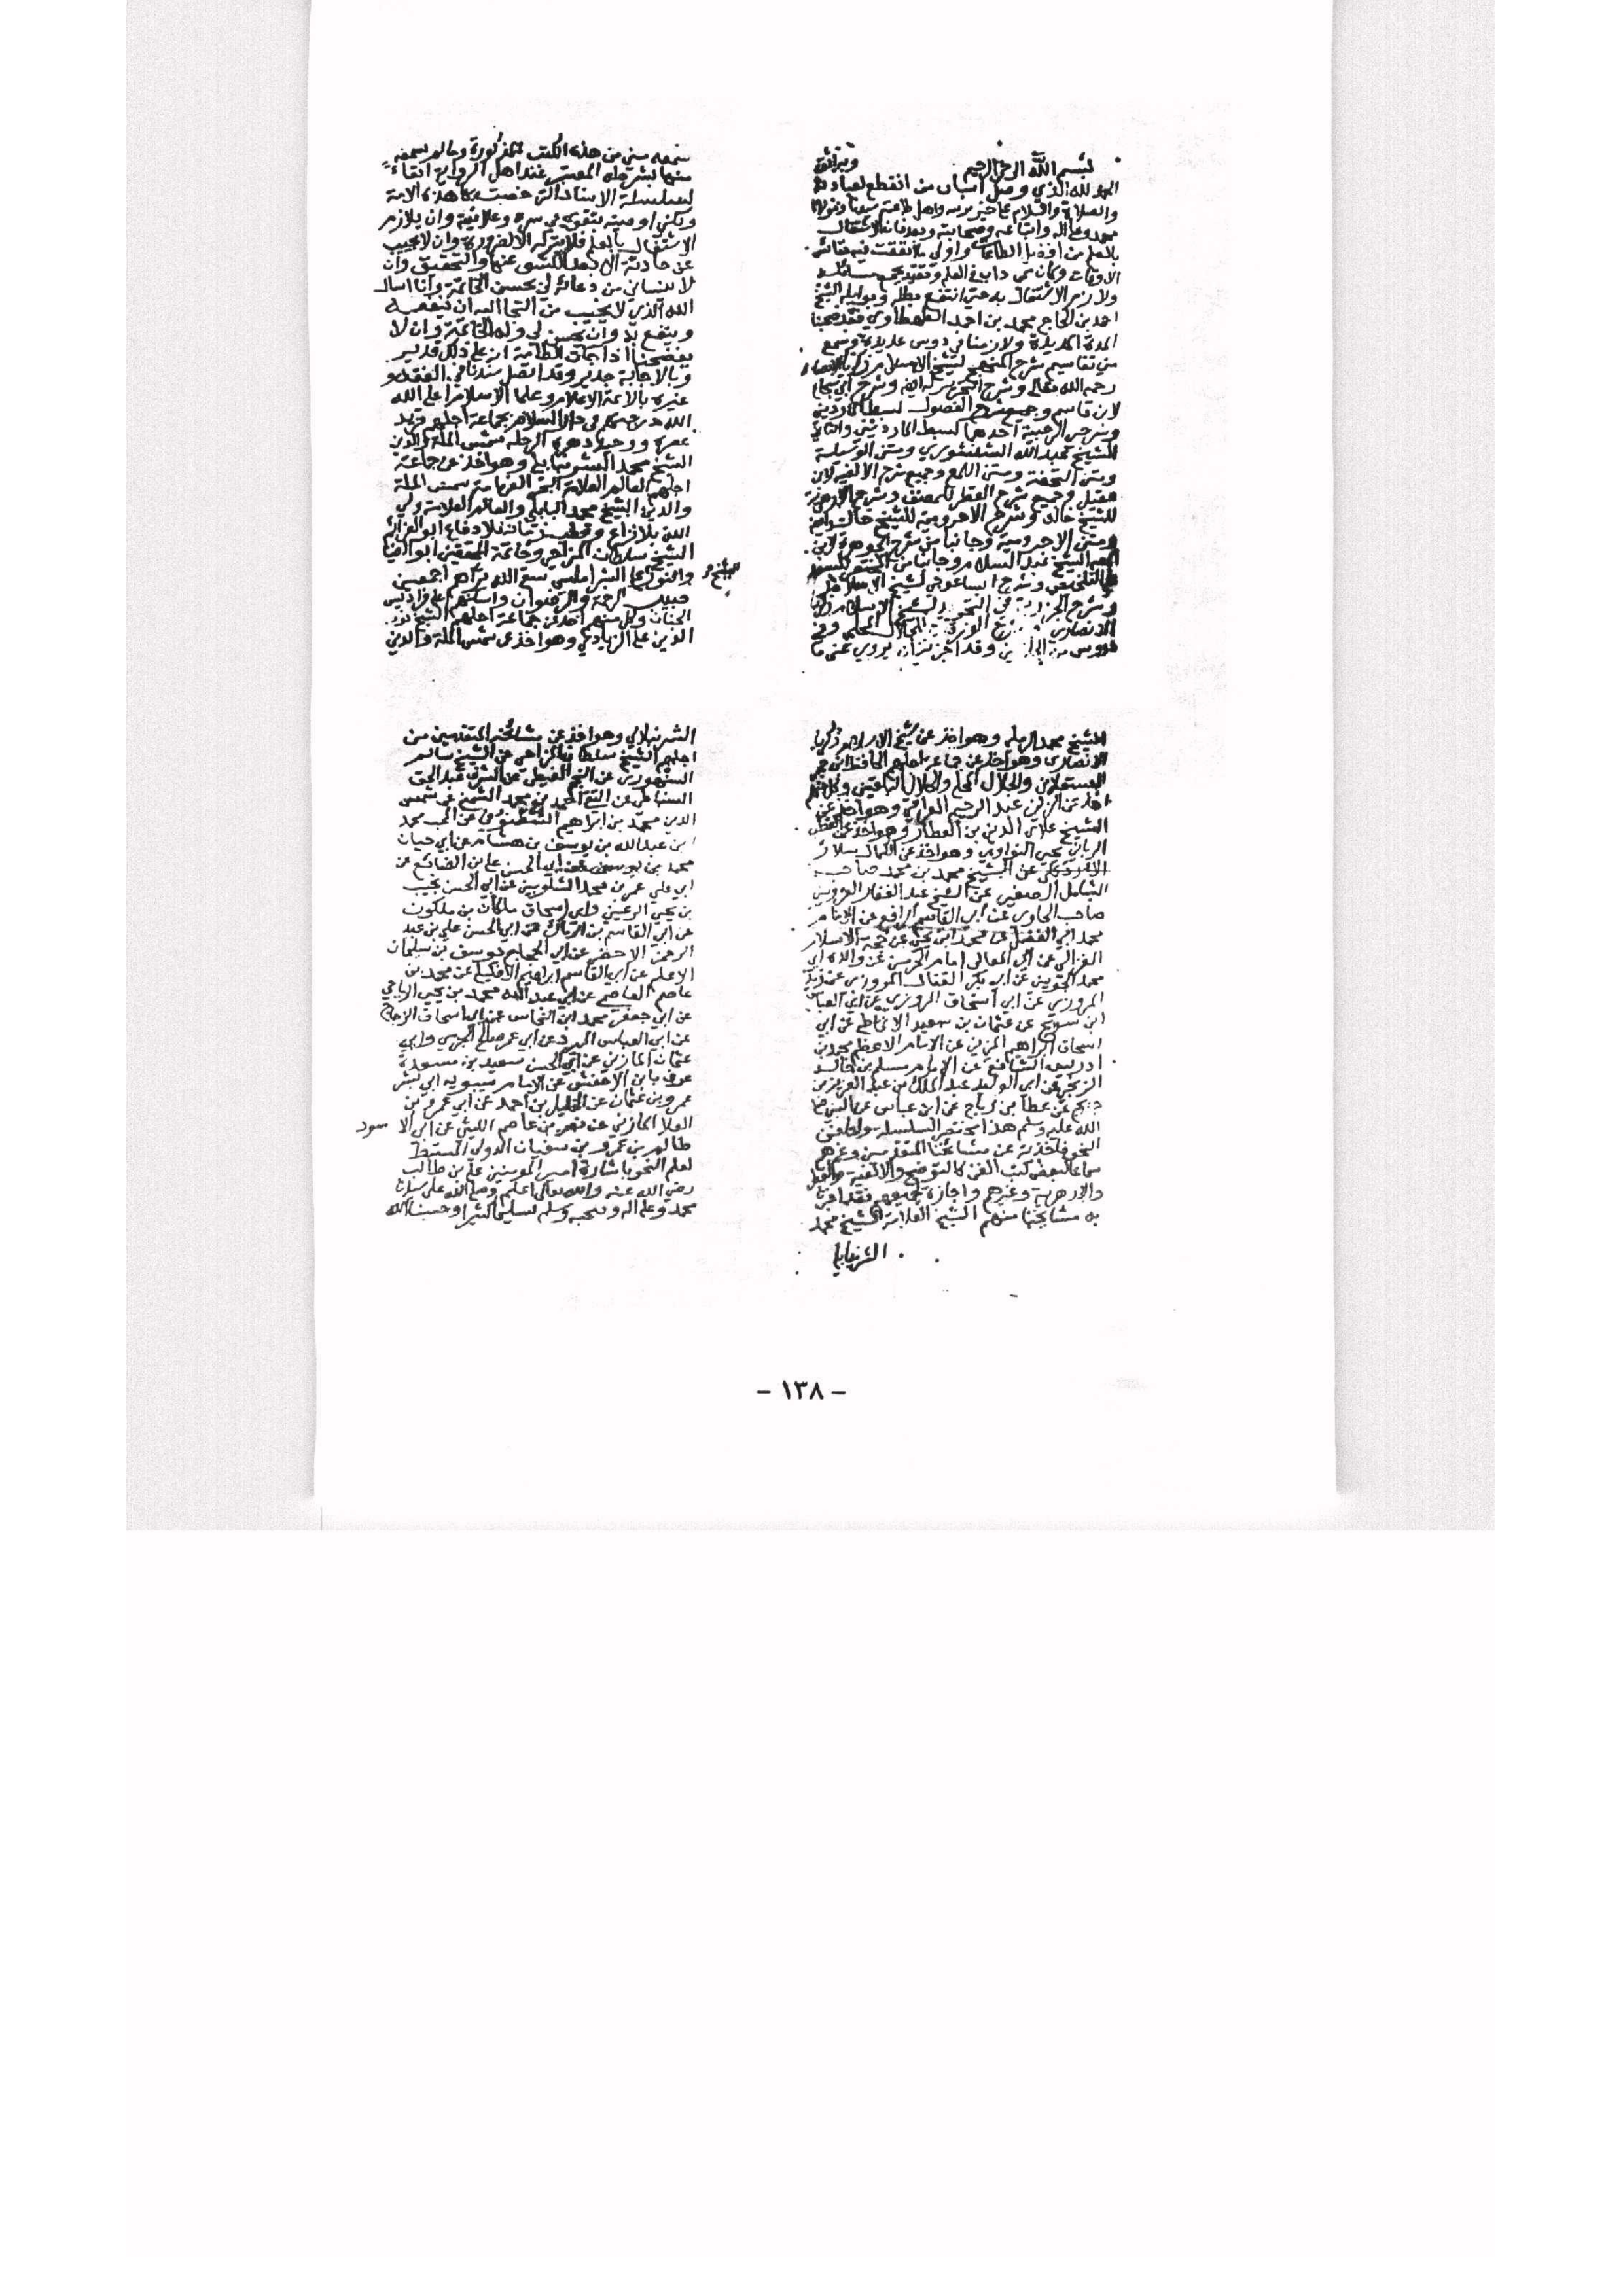 بسم الله الرحمن الرحيم وبه ثقتي
الحمد لله الذي وصل اسباب من انقطع لعبادته
والصلاة والسلام على خير بريته واهل طاعته سيدنا ومولانا
محمد وعلى اله واتباعه وصحابته وبعد فان الاشتغال
بالعلم من افضل الطاعات واولى ما انفقت فيه نفائس
الاوقات وكان ممن داب في العلم وتقيد بجمع مسائله
ولازم الاشتغال به حتى انتفع بطله ووابله الشيخ
احمد بن الحاج محمد بن احمد الطهطاوي فقد صحبنا
المدة المديدة ولازمنا في دروس عديدة وسمع
من تقاسيم شرح المنهج لشيخ الاسلام زكريا الانصاري
رحمه الله تعالى وشرح التحرير له ايضا وشرح ابي شجاع
لابن قاسم وجميع شرح الفصول لسبط المارديني
وشرحي الرحبية احدهما لسبط المارديني والثاني
للشيخ عبد الله الشنشوري ومتن الوسيلة
ومتن التحفة ومتن اللمع وجميع شرح الالفية لابن
عقيل وجميع شرح القطر للمصنف وشرح الازهرية
للشيخ خالد وشرح الاجرومية للشيخ خالد ايضا
ومتن الاجرومية وجانبا من شرح الجوهرة لابن
الشيخ عبد السلام وجانبا من المختصر للسعد
على التلخيص وشرح ايساغوجي لشيخ الاسلام
وشرح الجزرية في التجويد لشيخ الاسلام زكريا
الانصاري شرح الورقات للجلال المحلي وفي
دروس من وقد اجزته ان يروي عني ما
سمعه مني من هذه الكتب المذكورة وما لم يسمعه
منها بشرطه المعتبر عند اهل الرواية ابقاء
لسلسلة الاسناد التي خصت بها هذه الامة
ولكني اوصيه بتقوى في سره وعلانيته وان يلازم
الاشتغال بالعلم فلا يتركه الا لضرورة وان لا يجيب
عن حادثة الا بعد الكشف عنها والتحقيق وان
لا ينساني من دعائه لي بحسن الخاتمة وانا اسال
الله الذي لا يخيب من التجا اليه ان ينفعه
وينفع به وان يحسن لي وله الخاتمة وان لا
يفضحنا اذا جات الطامة انه على ذلك قدير
وبالاجابة جدير وقد اتصل سندنا في الفقه و
غيره بالائمة الاعلام وعلما الاسلام اعلى الله
الله درجتهم في دار السلام بجماعة اجلهم فريد
عصره ووحيد دهره الرحلة شمس الملة والدين
الشيخ محمد الشرنبابلي وهو اخذ عن جماعة
اجلهم العالم العلامة البحر الفهامة شمس الملة
والدين الشيخ محمد البابلي والعالم العلامة ولي
الله بلا نزاع وقطب زمانه بلا دفاع ابو العزائم
الشيخ سلطان المزاحي وخاتمة المحققين ابو الضيا
والنور علي الشبراملسي سقى الله ثراهم اجمعين
الشيخ
صبيب الرحمة والرضوان واسكنهم على فراديس
الجنان وكل منهم اخذ عن جماعة اجلهم الشيخ نور
الدين علي الزيادي وهو اخذ عن شمس الملة والدين
الشيخ محمد الرملي وهو اخذ عن شيخ الاسلام زكريا
الانصاري وهو اخذ عن جماعة اجلهم الحافظ ابن حجر
العسقلاني والجلال المحلي والجلال البلقيني وكل منهم
اخذ عن الزين عبد الرحيم العراقي وهو اخذ عن
الشيخ علاء الدين بن العطار وهو اخذ عن القطب
الرباني يحيى النواوي وهو اخذ عن الكمال سلار
الاردبيلي عن الشيخ محمد بن محمد صاحب
الشامل الصغير عن الشيخ عبد الغفار القزويني
صاحب الحاوي عن ابي القاسم الرافعي عن الامام
محمد ابي الفضل عن محمد ابن يحيى عن حجة الاسلام
الغزالي عن ابي المعالي امام الحرمين عن والده ابي
محمد الجويني عن ابي بكر القفال المروزي عن ابي زيد
المروزي عن ابي اسحاق المروزي عن ابي العباس
ابن سريج عن عثمان بن سعيد الانماطي عن ابي
اسحاق ابراهيم المزني عن الامام الاعظم محمد بن
ادريس الشافعي عن الامام مسلم بن خالد
الزنجي عن ابي الوليد عبد الملك بن عبد العزيز بن
جريج عن عطا بن رباح عن ابن عباس عن النبي صلى
الله عليه وسلم هذا مختصر السلسلة واما فن
النحو فاخذته عن مشايخنا المتقدمين وغيرهم
سماعا لبعض كتب الفن كالتوضيح والالفية والقطر
والازهرية وغيرهم واجازة بجميعهم فقد اجازنا
به مشايخنا منهم الشيخ العلامة الشيخ محمد
الشرنبابلي
الشرنبلالي وهو اخذ عن مشائخه المتقدمين من
اجلهم الشيخ سلطان المزاحي عن الشيخ سالم
السنهوري عن النجم الغيطي عن الشرف عبد الحق
السنباطي عن التقي احمد بن محمد الشمني عن شمس
الدين محمد بن ابراهيم الشطنوفي عن المحب محمد
ابن عبد الله بن يوسف بن هشام عن ابي حيان
محمد بن يوسف عن ابي الحسن علي بن الضائع عن
ابي علي عمر بن محمد الشلوبين عن ابي الحسن نجيب
بن يحيى الرعيني وابي اسحاق ملكان بن ملكون
عن ابي القاسم بن الرماك عن ابي الحسن علي بن عبد
الرحمن الاخضر عن ابي الحجاج يوسف بن سليمان
الاعلم عن ابي القاسم ابراهيم الافليلي عن محمد بن
عاصم العاصمي عن ابي عبد الله محمد بن يحيى الرباحي
عن ابي جعفر محمد ابن النحاس عن ابي اسحاق الزجاج
عن ابي العباس المبرد عن ابي عمر صالح الجرمي وابي
عثمان المازني عن ابي الحسن سعيد بن مسعدة
عرف بابن الاخفش عن الامام سيبويه ابي بشر
عمرو بن عثمان عن الخليل بن احمد عن ابي عمرو بن
العلا المازني عن نصر بن عاصم الليثي عن ابي الاسود
ظالم بن عمرو بن سفيان الدولي المستنبط
لعلم النحو باشارة امير المومنين علي بن طالب
رضي الله عنه والله تعالى اعلم وصلى الله على سيدنا
محمد وعلى اله وصحبه وسلم تسليما كثيرا وحسبنا الله
- ١٣٨ -